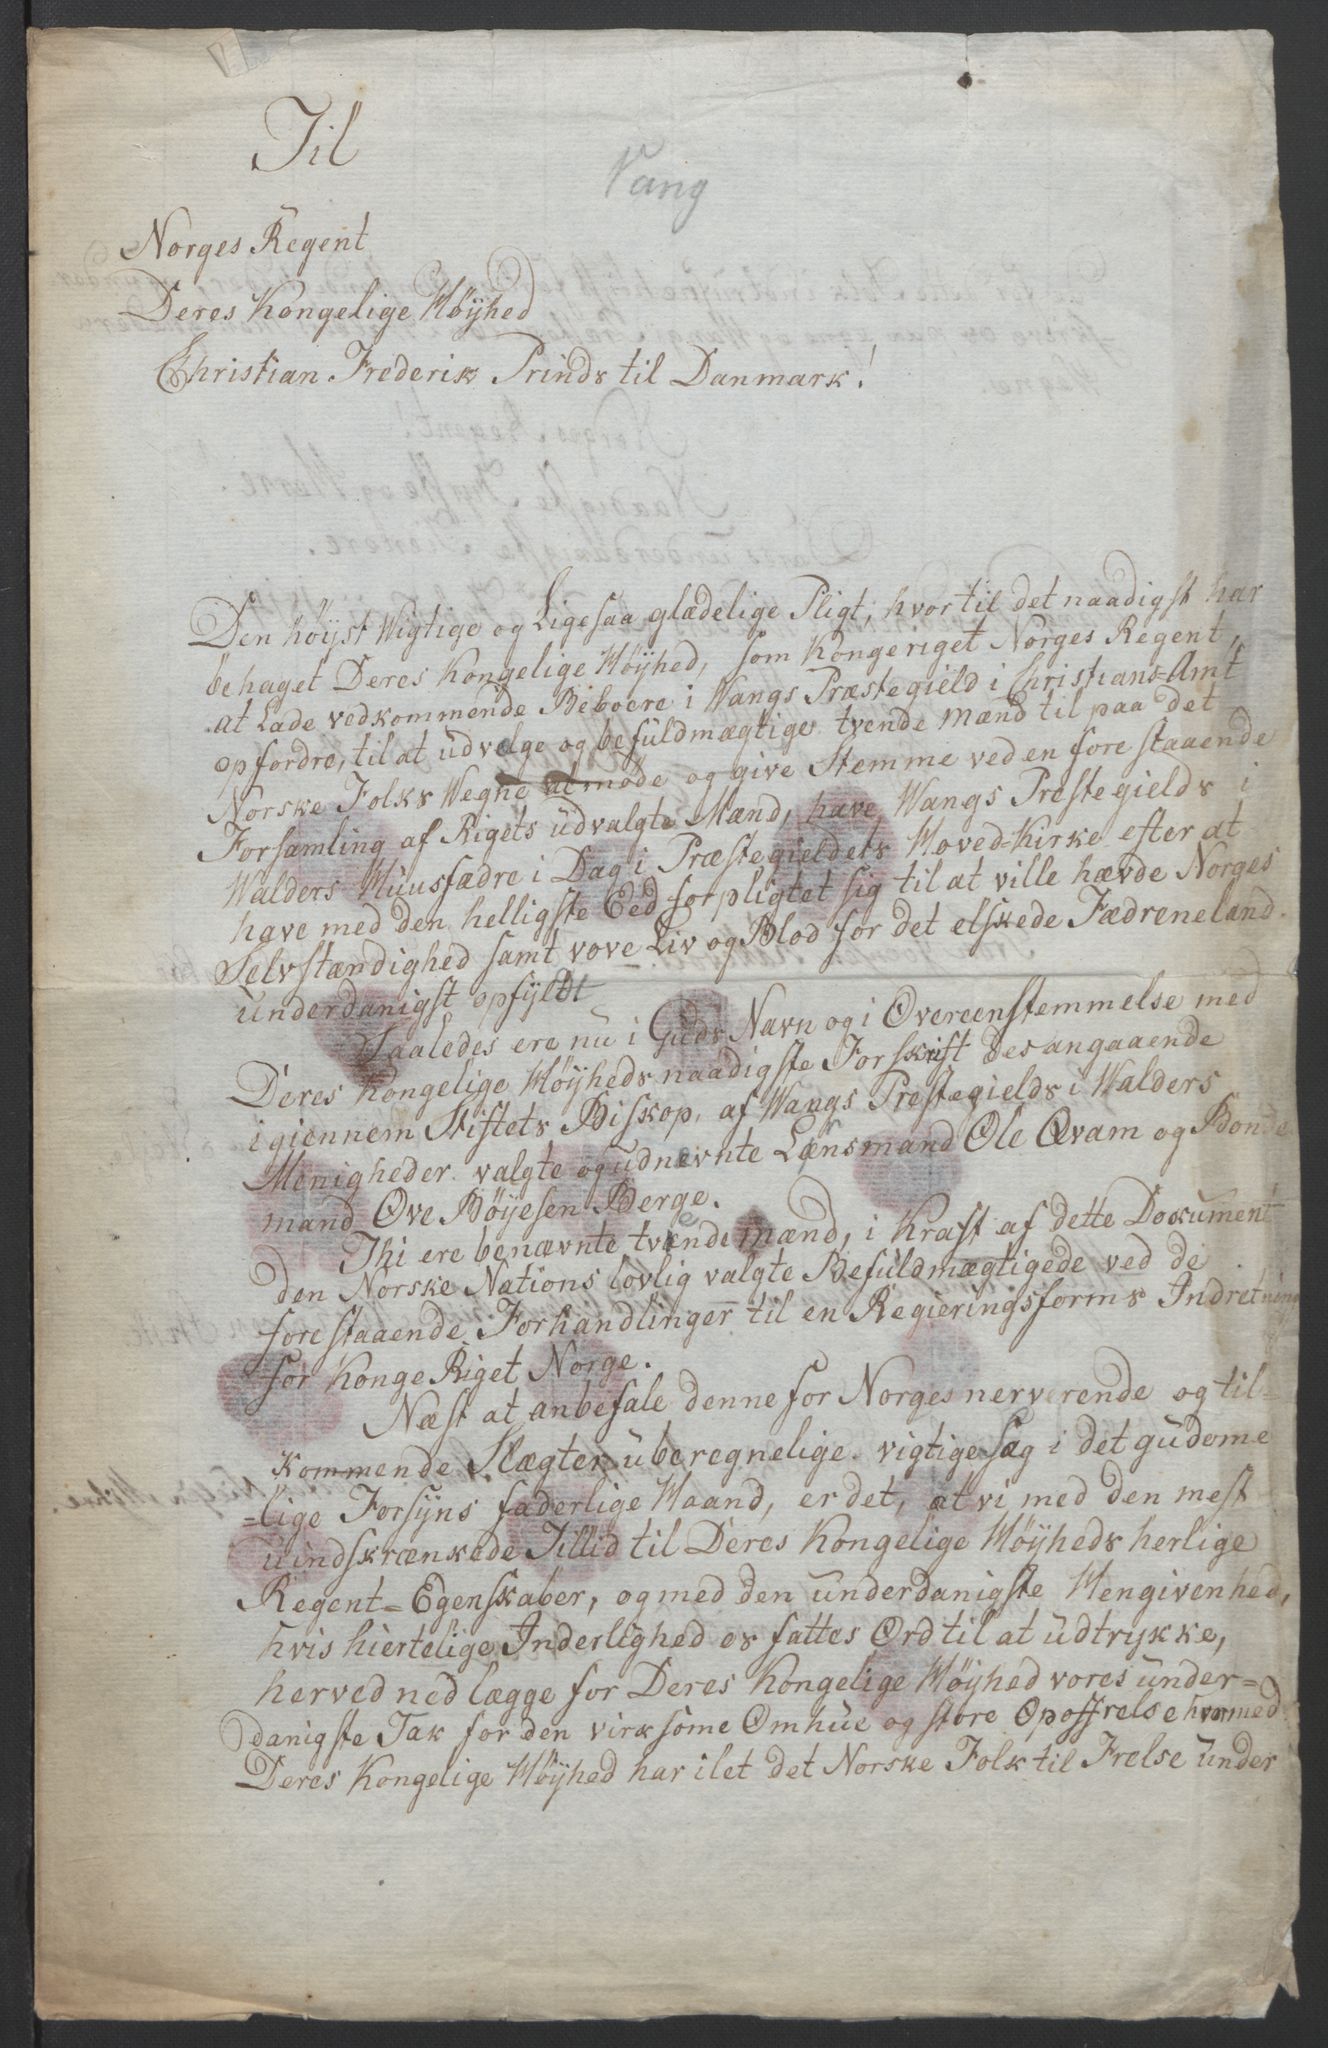 Til
Vang
Norges Regent
Deres Kongelige Høÿhed
Christian Frederik Prinds til Danmark!
Den høÿst Wigtige og Ligesaa glædelige Pligt, hvortil det naadigst har
behaget Deres Kongelige Høÿhed, som Kongeriget Norges Regent,
at Lade vedkommende Beboere i Wangs Præstegield i Christians-Amt
opfordre, til at udvelge og befuldmægtige tvende Mænd til paa det
Norske Folks Wegne at møde og give Stemme ved en fore staaende
Forsamling af Rigets udvalgte Mænd, have Wangs Prestegields i
Walders Huusfædre i Dag i Præstegieldets Hoved-Kirke efter at
have med den helligste Eed forpligtet sig til at ville hævde Norges
Selvstændighed samt vove Liv og Blod for det elskede Fædreneland
underdanigst opfÿldt
Saaledes ere nu i Guds Navn og i Overeenstemmelse med
Deres Kongelige Høÿheds naadigste Forskrift des angaaende
igiennem Stiftets Biskop, af Wangs Prestegields i Walders
Menigheder valgte og udnevnte Lænsmand Ole Qvam og Bonde
mand Ove Bøÿesen Berge.
Thi ere benævnte tvende mænd, i Kraft af dette Document
den Norske Nations lovlig valgte Befuldmægtigede ved de
forestaaende Forhandlinger til en Regieringsforms Indretning
for Konge Riget Norge.
Næst at anbefale denne for Norges nerverende og til-
kommende Slægter uberegnelige vigtige Sag i det gudome
-lige Forsÿns faderlige Haand, er det, at vi med den mest
uindskrænkede Tillid til Deres Kongelige Høÿheds herlige
Regent-Egenskaber, og med den underdanigste Hengivenhed,
hvis hiertelige Inderlighed os fattes Ord til at udtrykke,
herved nedlægge for Deres Kongelige Høÿhed vores under-
danigste Tak for den virksome Omhue og store Opoffrelse hvormed
Deres Kongelige Høÿhed har ilet det Norske Folk til Frelse under